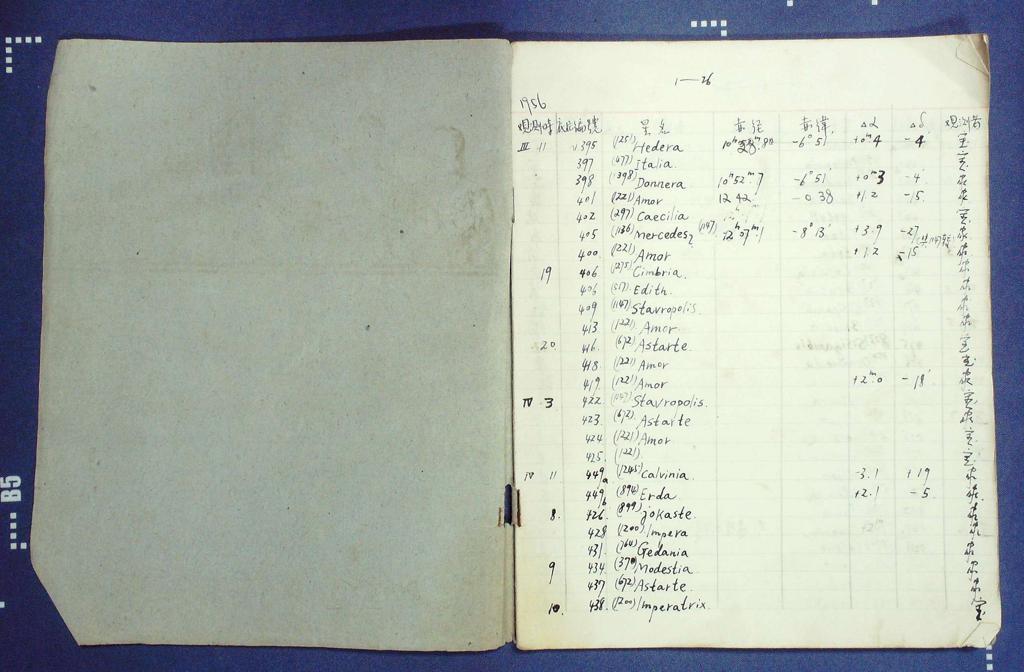 1—26
1956
观测时 底片编號 星名 赤经 赤緯 Δα Δδ 观测者
III 11 395 (1251) Hedera -6° 51 +0ᵐ4 -4
397 (477) Italia.
398 (1398) Donnera 10ʰ52ᵐ.7 -6° 51' +0ᵐ3 -4'
401 (1221) Amor 12 42 -0 38 +1.2 -15.
402 (297) Caecilia
405 (1136) Mercedes (1147) 12ʰ07ᵐ1 -8° 13' +3.9 -27
400 (1221) Amor +1.2 -15
19 406 (275) Cimbria.
406 (517) Edith.
409 (1147) Stavropolis.
413 (1221) Amor
20. 416. (672) Astarte.
418. (1221) Amor
419. (1221) Amor +2ᵐ.0 -18'
IV 3 422. (1147) Stavropolis.
423. (672) Astarte
424 (1221) Amor
425. (1221).
IV 11 449a (1245) Calvinia -3.1 +19
449b (894) Erda +2.1 -5
8. 426. (899) jokaste.
428 (1200) Impera
431. (764) Gedania
9 434 (370) Modestia
437 (672) Astarte
10. 438. (1200) Imperatrix.
B5